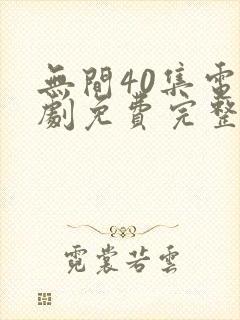 無間40集電
劇免費完整
霓裳若雲